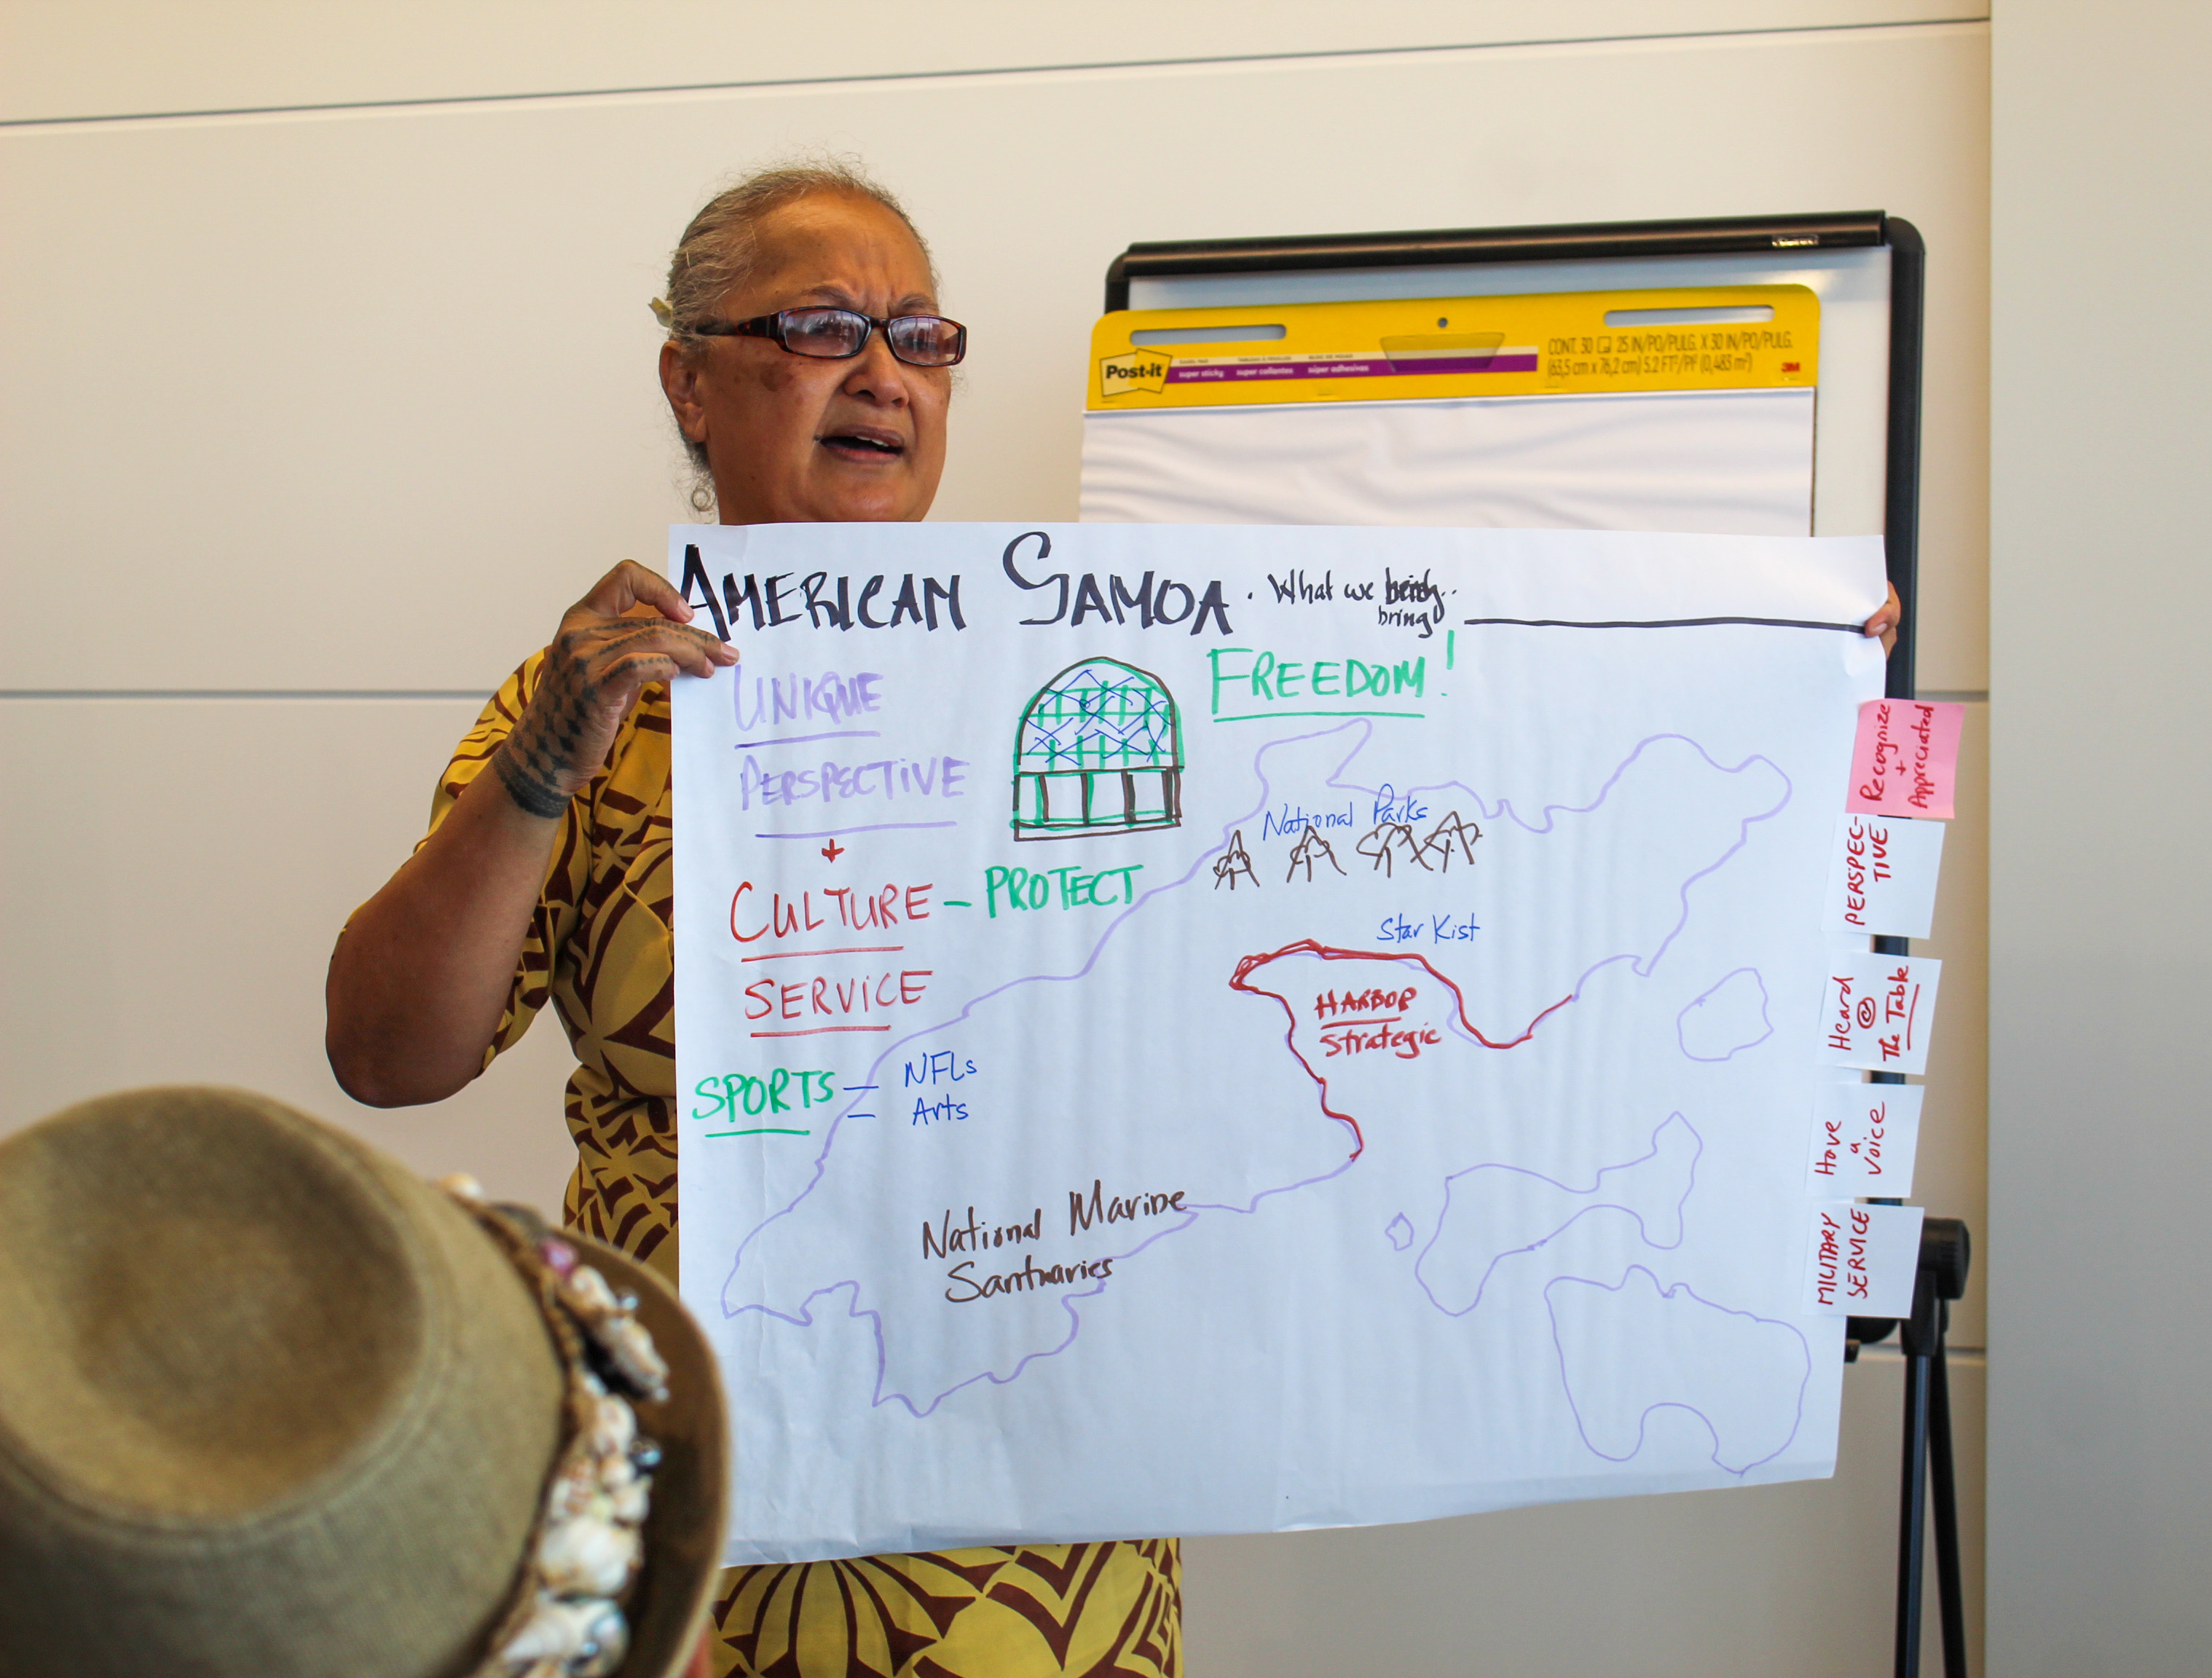 Post-it
super sticky super collantes súper adhesivas
CONT. 30 25 IN/PO/PULG. X 30 IN/PO/PULG.
(63,5 cm x 76,2 cm) 5.2 FT²/PI² (0,483 m²)
3M
AMERICAN SAMOA. What we
bring
UNIQUE
PERSPECTIVE
+
CULTURE - PROTECT
SERVICE
SPORTS - NFLs
- Arts
FREEDOM!
National Parks
Star Kist
HARBOR
Strategic
National Marine
Santuaries
Recognize
+
Appreciated
PERSPEC-
TIVE
Heard
@
The Table
Have
a
Voice
MILITARY
SERVICE